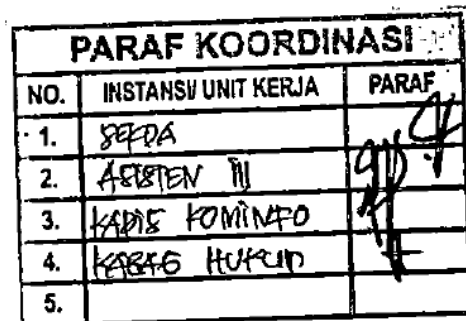 PARAF KOORDINASI
NO. INSTANSI/ UNIT KERJA PARAF
1. SEKDA
2. ASISTEN III
3. KADIS KOMINFO
4. KABAG HUKUM
5.